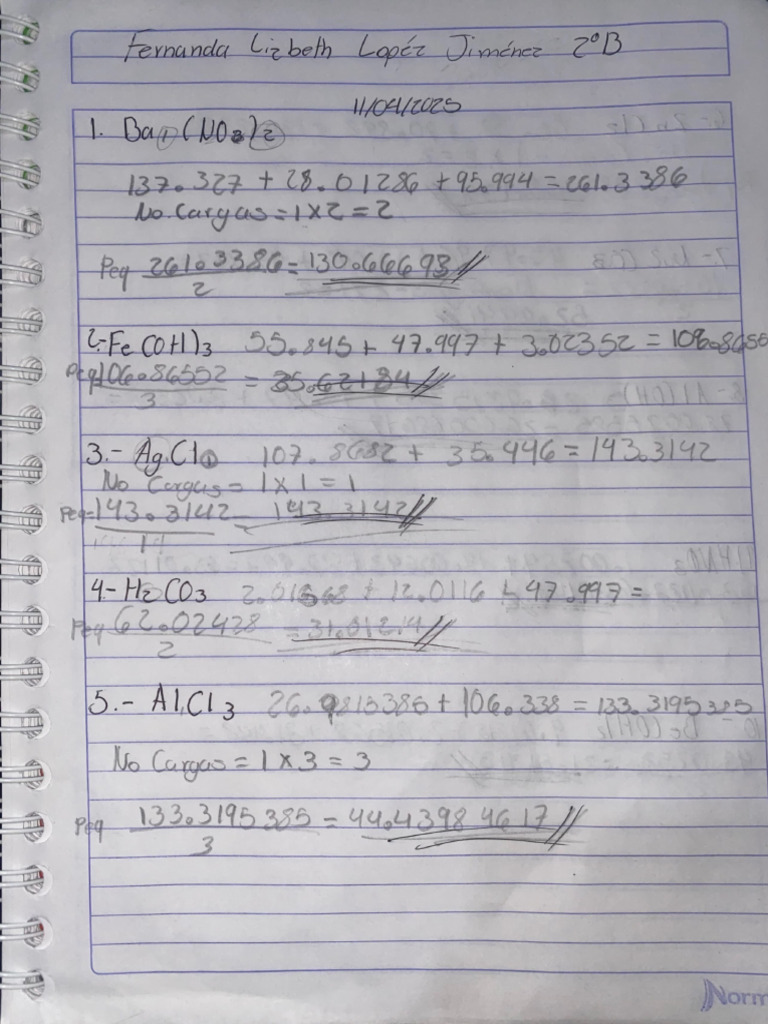 Fernanda Lizbeth Lopéz Jiménez 2°B
11/04/2025
1. Ba1(NO3)2
137.327 + 28.01286 + 95.994 = 261.3386
No Cargas = 1 x 2 = 2
Peq 261.3386 = 130.66693
2
2.- Fe(OH)3 55.845 + 47.997 + 3.02352 = 106.8655
Peq 106.86552 = 35.62184
3
3.- AgCl1 107.8682 + 35.446 = 143.3142
No Cargas = 1 x 1 = 1
Peq = 143.3142 = 143.3142
1
4.- H2CO3 2.01568 + 12.0116 + 47.997 =
Peq 62.02428 = 31.01214
2
5.- AlCl3 26.9815385 + 106.338 = 133.3195385
No Cargas = 1 x 3 = 3
Peq 133.3195385 = 44.43984617
3
Norm